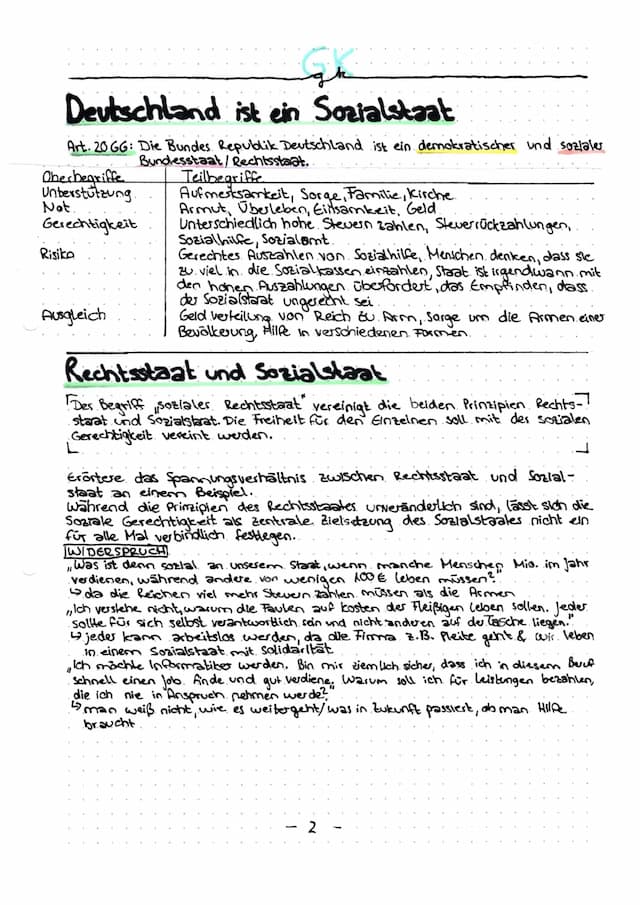 GK
gk
Deutschland ist ein Sozialstaat
Art. 20 GG: Die Bundes Republik Deutschland ist ein demokratischer und sozialer
Bundesstaat/Rechtsstaat.
Oberbegriffe Teilbegriffe
Unterstützung Aufmerksamkeit, Sorge, Familie, Kirche
Not Armut, Überleben, Einsamkeit, Geld
Gerechtigkeit Unterschiedlich hohe Steuern zahlen, Steuerrückzahlungen,
Sozialhilfe, Sozialamt.
Risiko Gerechtes Auszahlen von Sozialhilfe, Menschen denken, dass sie
zu viel in die Sozialkassen einzahlen, Staat ist irgendwann mit
den hohen Auszahlungen überfordert, das Empfinden, dass
der Sozialstaat ungerecht sei
Ausgleich Geld verteilung von Reich zu Arm, Sorge um die Armen einer
Bevölkerung, Hilfe in verschiedenen Formen.
Rechtsstaat und Sozialstaat
Der Begriff „sozialer Rechtsstaat" vereinigt die beiden Prinzipien Rechts-
staat und Sozialstaat. Die Freiheit für den Einzelnen soll mit der sozialen
Gerechtigkeit vereint werden.
Erörtere das Spannungsverhältnis zwischen Rechtsstaat und Sozial-
staat an einem Beispiel.
Während die Prinzipien des Rechtsstaates unveränderlich sind, lässt sich die
Soziale Gerechtigkeit als zentrale Zielsetzung des Sozialstaates nicht ein
für alle Mal verbindlich festlegen.
WIDERSPRUCH
„Was ist denn sozial an unserem Staat, wenn manche Menschen Mio. im Jahr
verdienen, während andere von wenigen 100€ leben müssen?"
↳ da die Reichen viel mehr Steuern zahlen müssen als die Armen
„Ich verstehe nicht, warum die Faulen auf kosten der Fleißigen leben sollen. Jeder
sollte für sich selbst verantwortlich sein und nicht anderen auf der Tasche liegen."
↳ jeder kann arbeitslos werden, da die Firma z.B. Pleite geht & wir leben
in einem Sozialstaat mit Solidarität
„Ich möchte Informatiker werden. Bin mir ziemlich sicher, dass ich in diesem Beruf
schnell einen Job finde und gut verdiene. Warum soll ich für Leistungen bezahlen,
die ich nie in Anspruch nehmen werde?"
↳ man weiß nicht, wie es weitergeht/was in Zukunft passiert, ob man Hilfe
braucht
- 2 -